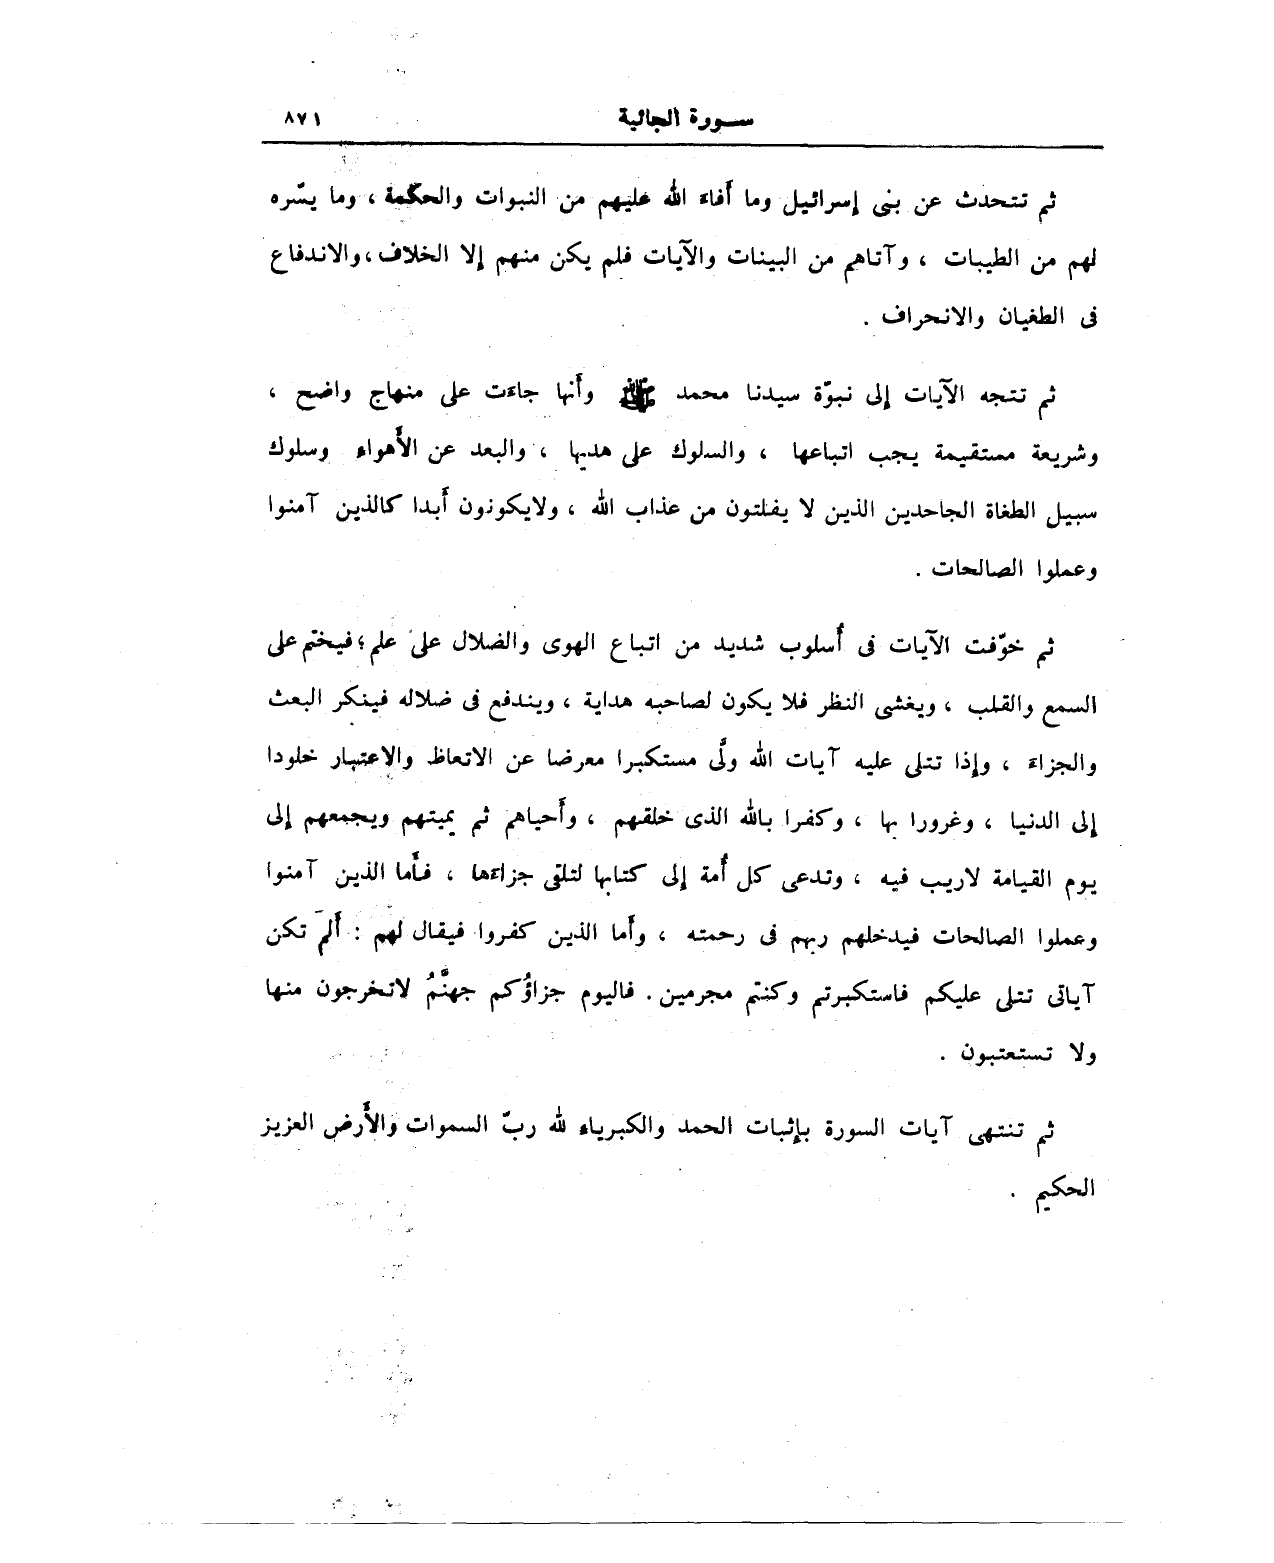 سورة الجاثية ٨٧١
ثم تتحدث عن بنى إسرائيل وما أَفاءَ الله عليهم من النبوات والحكمة ، وما يسّره
لهم من الطيبات ، وآتاهم من البينات والآيات فلم يكن منهم إلا الخلاف ، والاندفاع
فى الطغيان والانحراف .
ثم تتجه الآيات إلى نبوّة سيدنا محمد ﷺ وأَنها جاءَت على منهاج واضح ،
وشريعة مستقيمة يجب اتباعها ، والسلوك على هديها ، والبعد عن الأَهواءِ وسلوك
سبيل الطغاة الجاحدين الذين لا يفلتون من عذاب الله ، ولايكونون أَبدا كالذين آمنوا
وعملوا الصالحات .
ثم خوّفت الآيات فى أُسلوب شديد من اتباع الهوى والضلال على علم ؛ فيختم على
السمع والقلب ، ويغشى النظر فلا يكون لصاحبه هداية ، ويندفع فى ضلاله فينكر البعث
والجزاءَ ، وإذا تتلى عليه آيات الله ولَّى مستكبرا معرضا عن الاتعاظ والاعتبار خلودا
إلى الدنيا ، وغرورا بها ، وكفرا بالله الذى خلقهم ، وأَحياهم ثم يميتهم ويجمعهم إلى
يوم القيامة لاريب فيه ، وتدعى كل أُمة إلى كتابها لتلقى جزاءَها ، فأَما الذين آمنوا
وعملوا الصالحات فيدخلهم ربهم فى رحمته ، وأَما الذين كفروا فيقال لهم : أَلم تكن
آياتى تتلى عليكم فاستكبرتم وكنتم مجرمين . فاليوم جزاؤُكم جهنَّمُ لاتخرجون منها
ولا تستعتبون .
ثم تنتهى آيات السورة بإثبات الحمد والكبرياء لله ربّ السموات والأَرض العزيز
الحكيم .